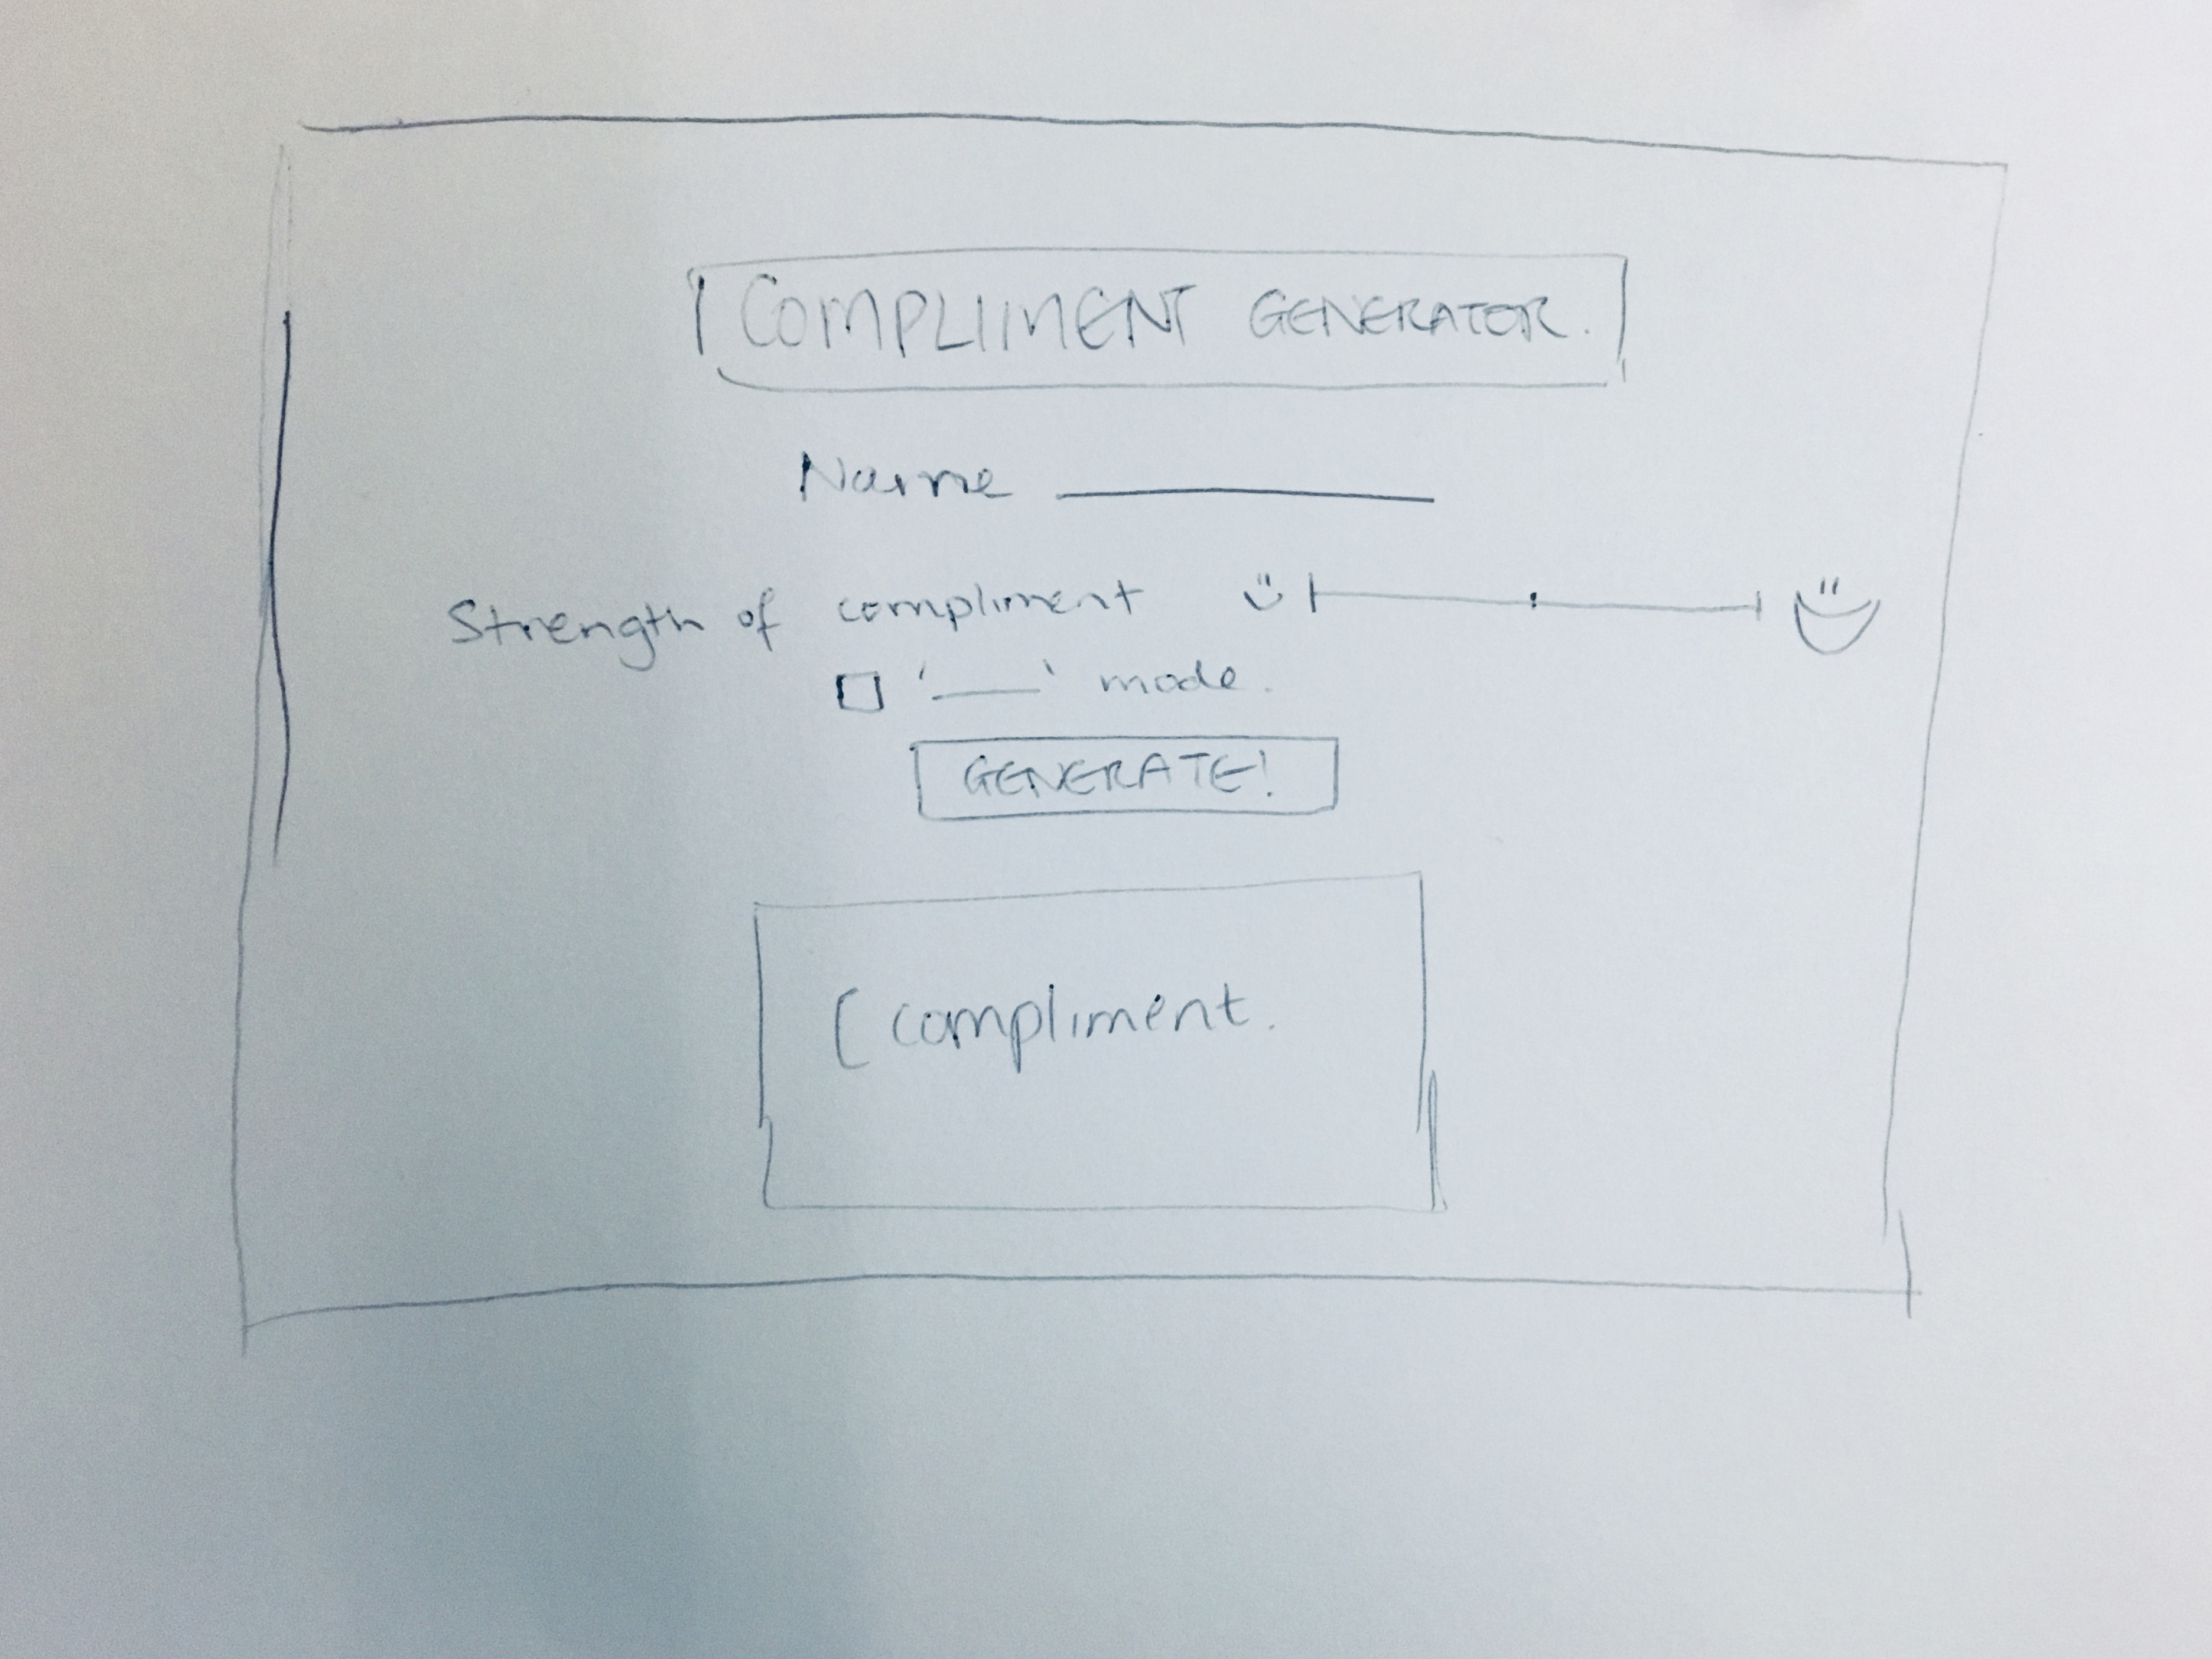 COMPLIMENT GENERATOR.
Name
Strength of compliment
'___' mode.
GENERATE!
[ compliment.